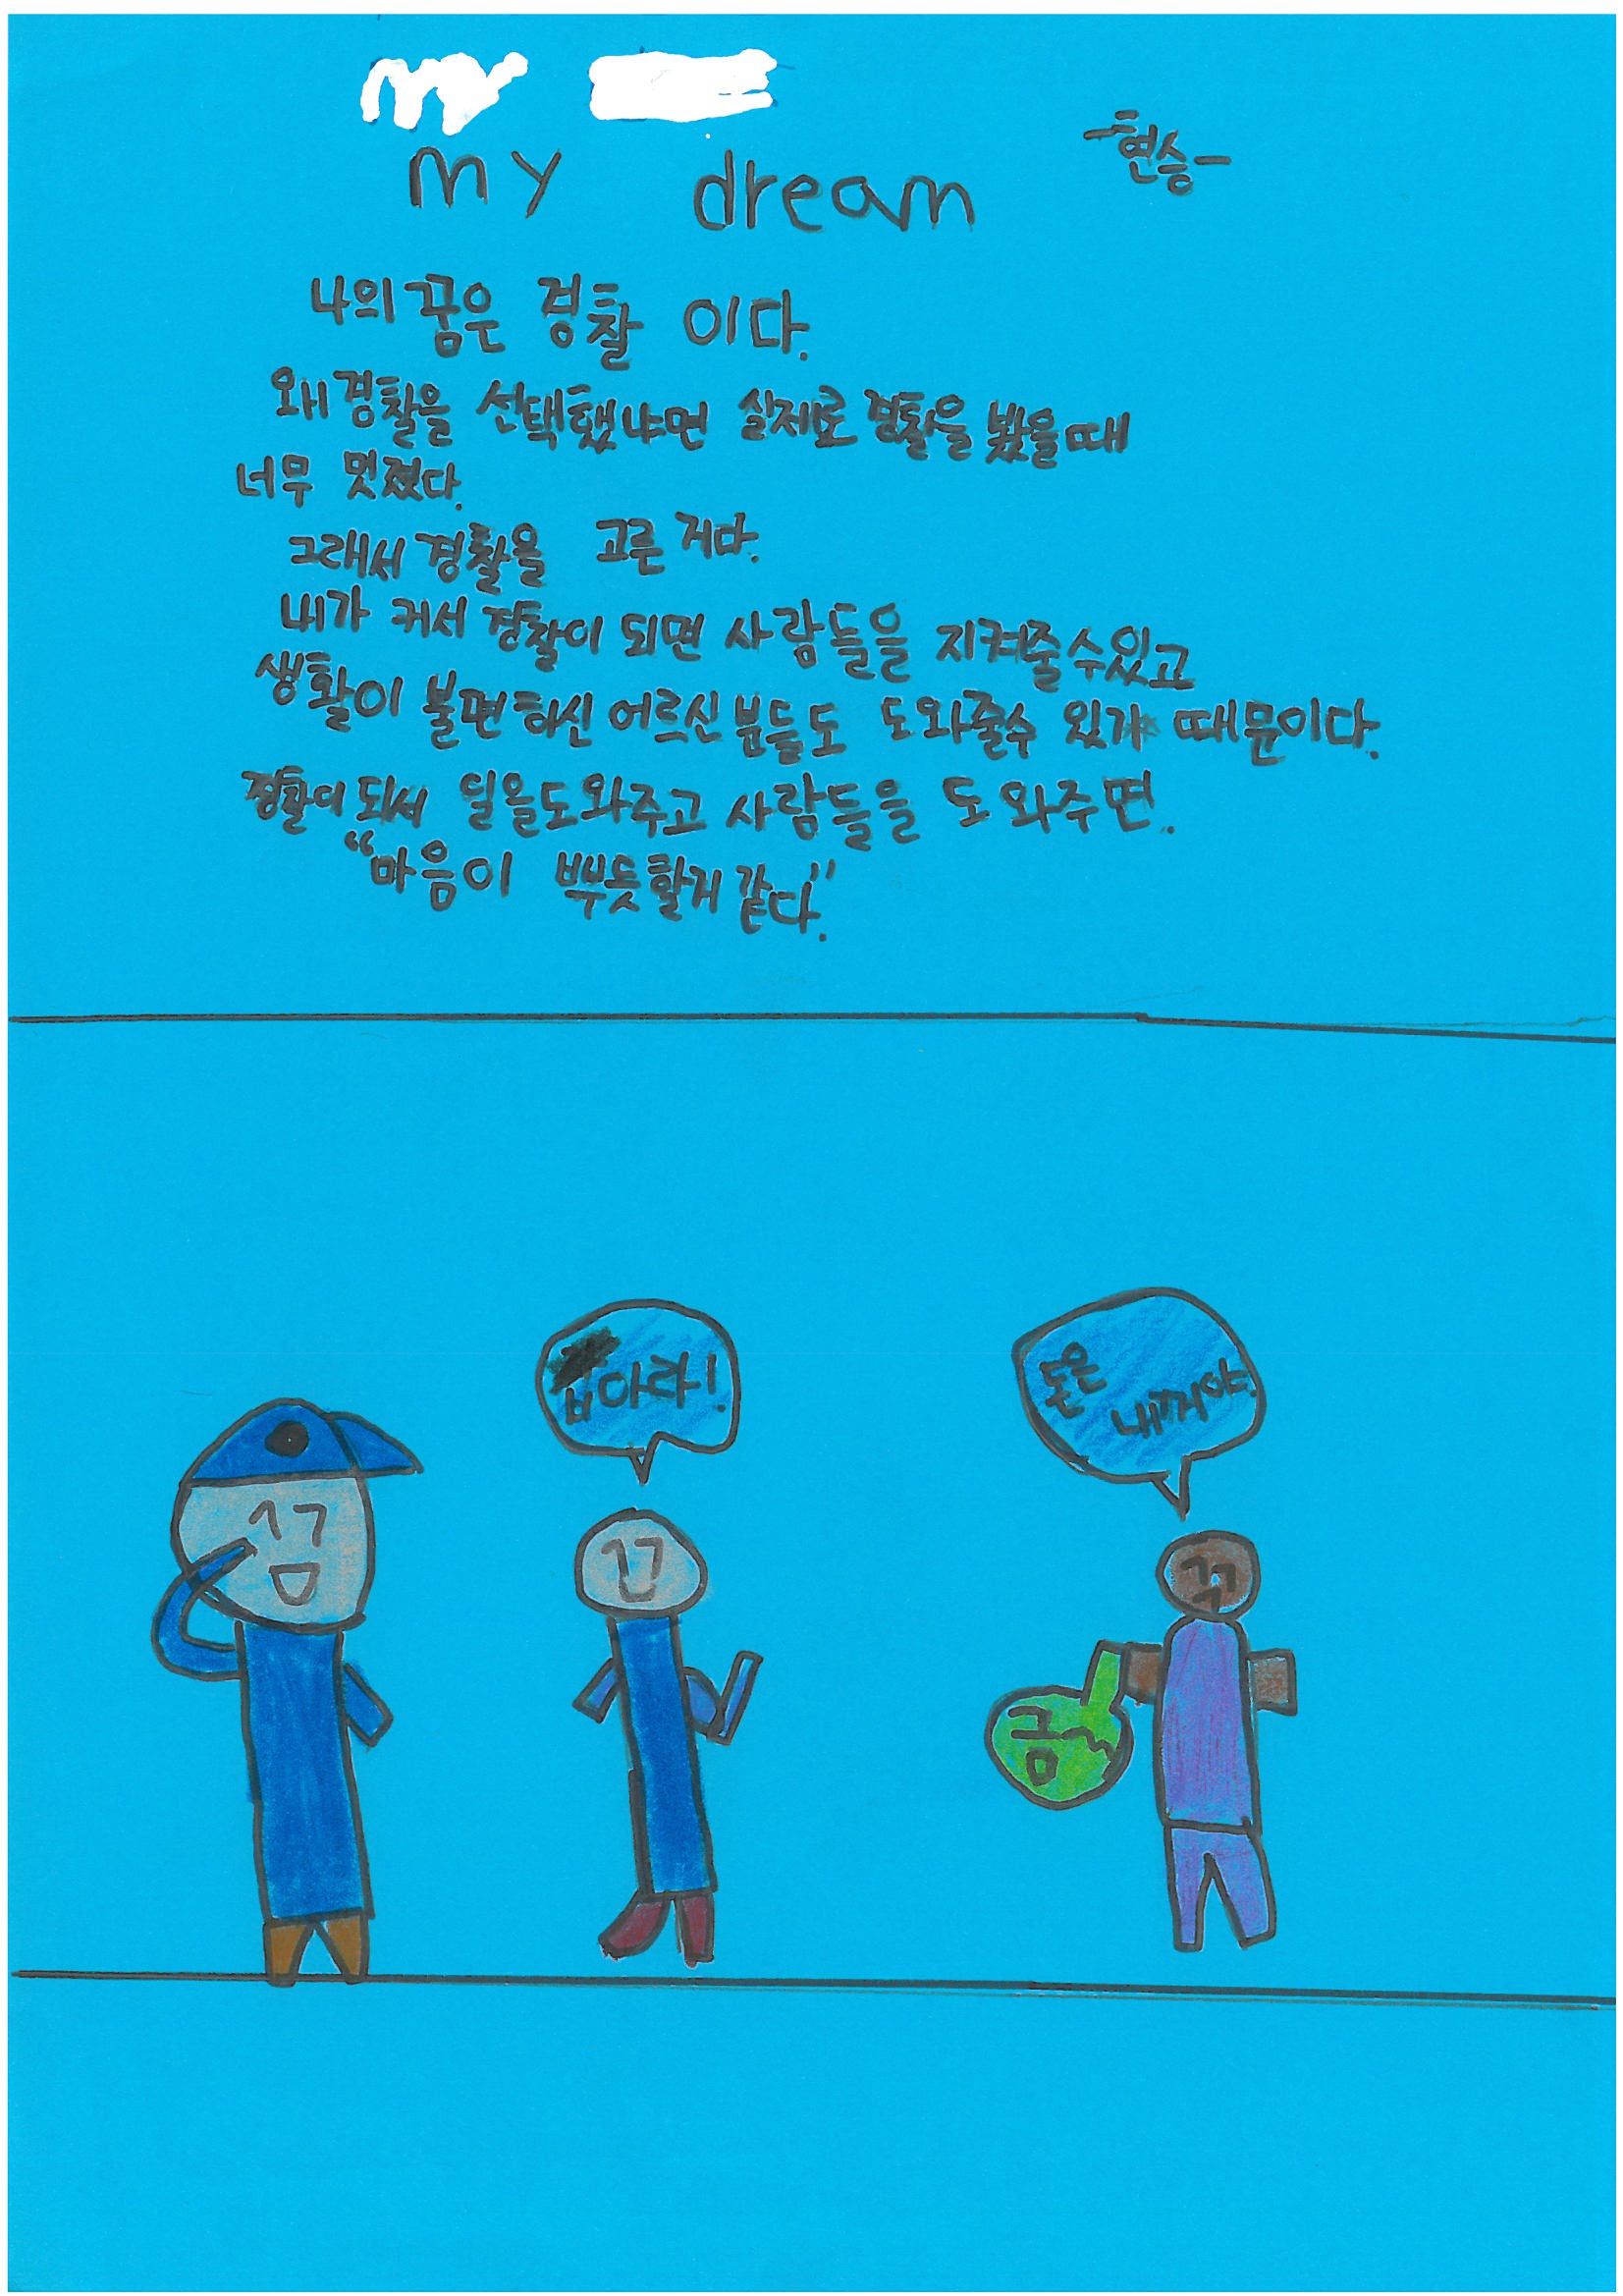 my
my dream
-현승-
나의 꿈은 경찰 이다.
왜 경찰을 선택했냐면 실제로 경찰을 봤을때
너무 멋졌다.
그래서 경찰을 고른 거다.
내가 커서 경찰이 되면 사람들을 지켜줄수있고
생활이 불편하신 어르신분들도 도와줄수 있기 때문이다.
경찰이 되서 일을도와주고 사람들을 도와주면.
“마음이 뿌듯할거 같다.”
아라!
돈은
내꺼야.
금